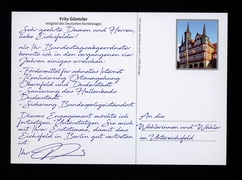 Fritz Güntzler
Mitglied des Deutschen Bundestages
Sehr geehrte Damen und Herren,
liebe Eichsfelder!
als Ihr Bundestagsabgeordneter
konnte ich in den vergangenen vier
Jahren einiges erreichen:
- Fördermittel für schnelles Internet
- Realisierung Ortsumgehung
Obernfeld und Duderstadt
- Sanierung des Hallenbads
Duderstadt
- Sicherung Bundespolizeistandort
Dieses Engagement möchte ich
fortsetzen. Unterstützen Sie mich
mit Ihrer Erststimme, damit das
Eichsfeld in Berlin gut vertreten
ist.
Ihr
An die
Wählerinnen und Wähler
im Untereichsfeld